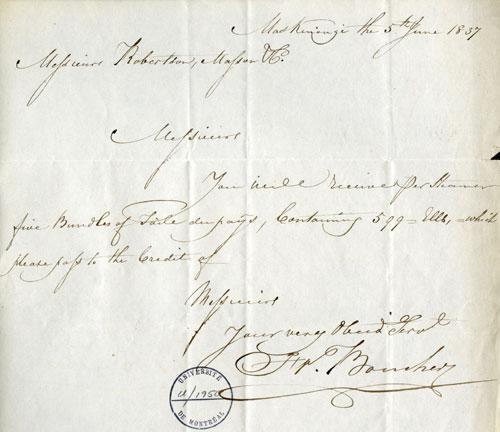 Maskinongé the 5th June 1837
Messieurs Robertson, Masson & Co.
Messieurs
You will receive per Steamer
five Bundles of Toile du pays, Containing 599 = Ells, = which
please pass to the Credit of
Messieurs
Your very Obed. Servt
Boucher
UNIVERSITÉ
DE MONTRÉAL